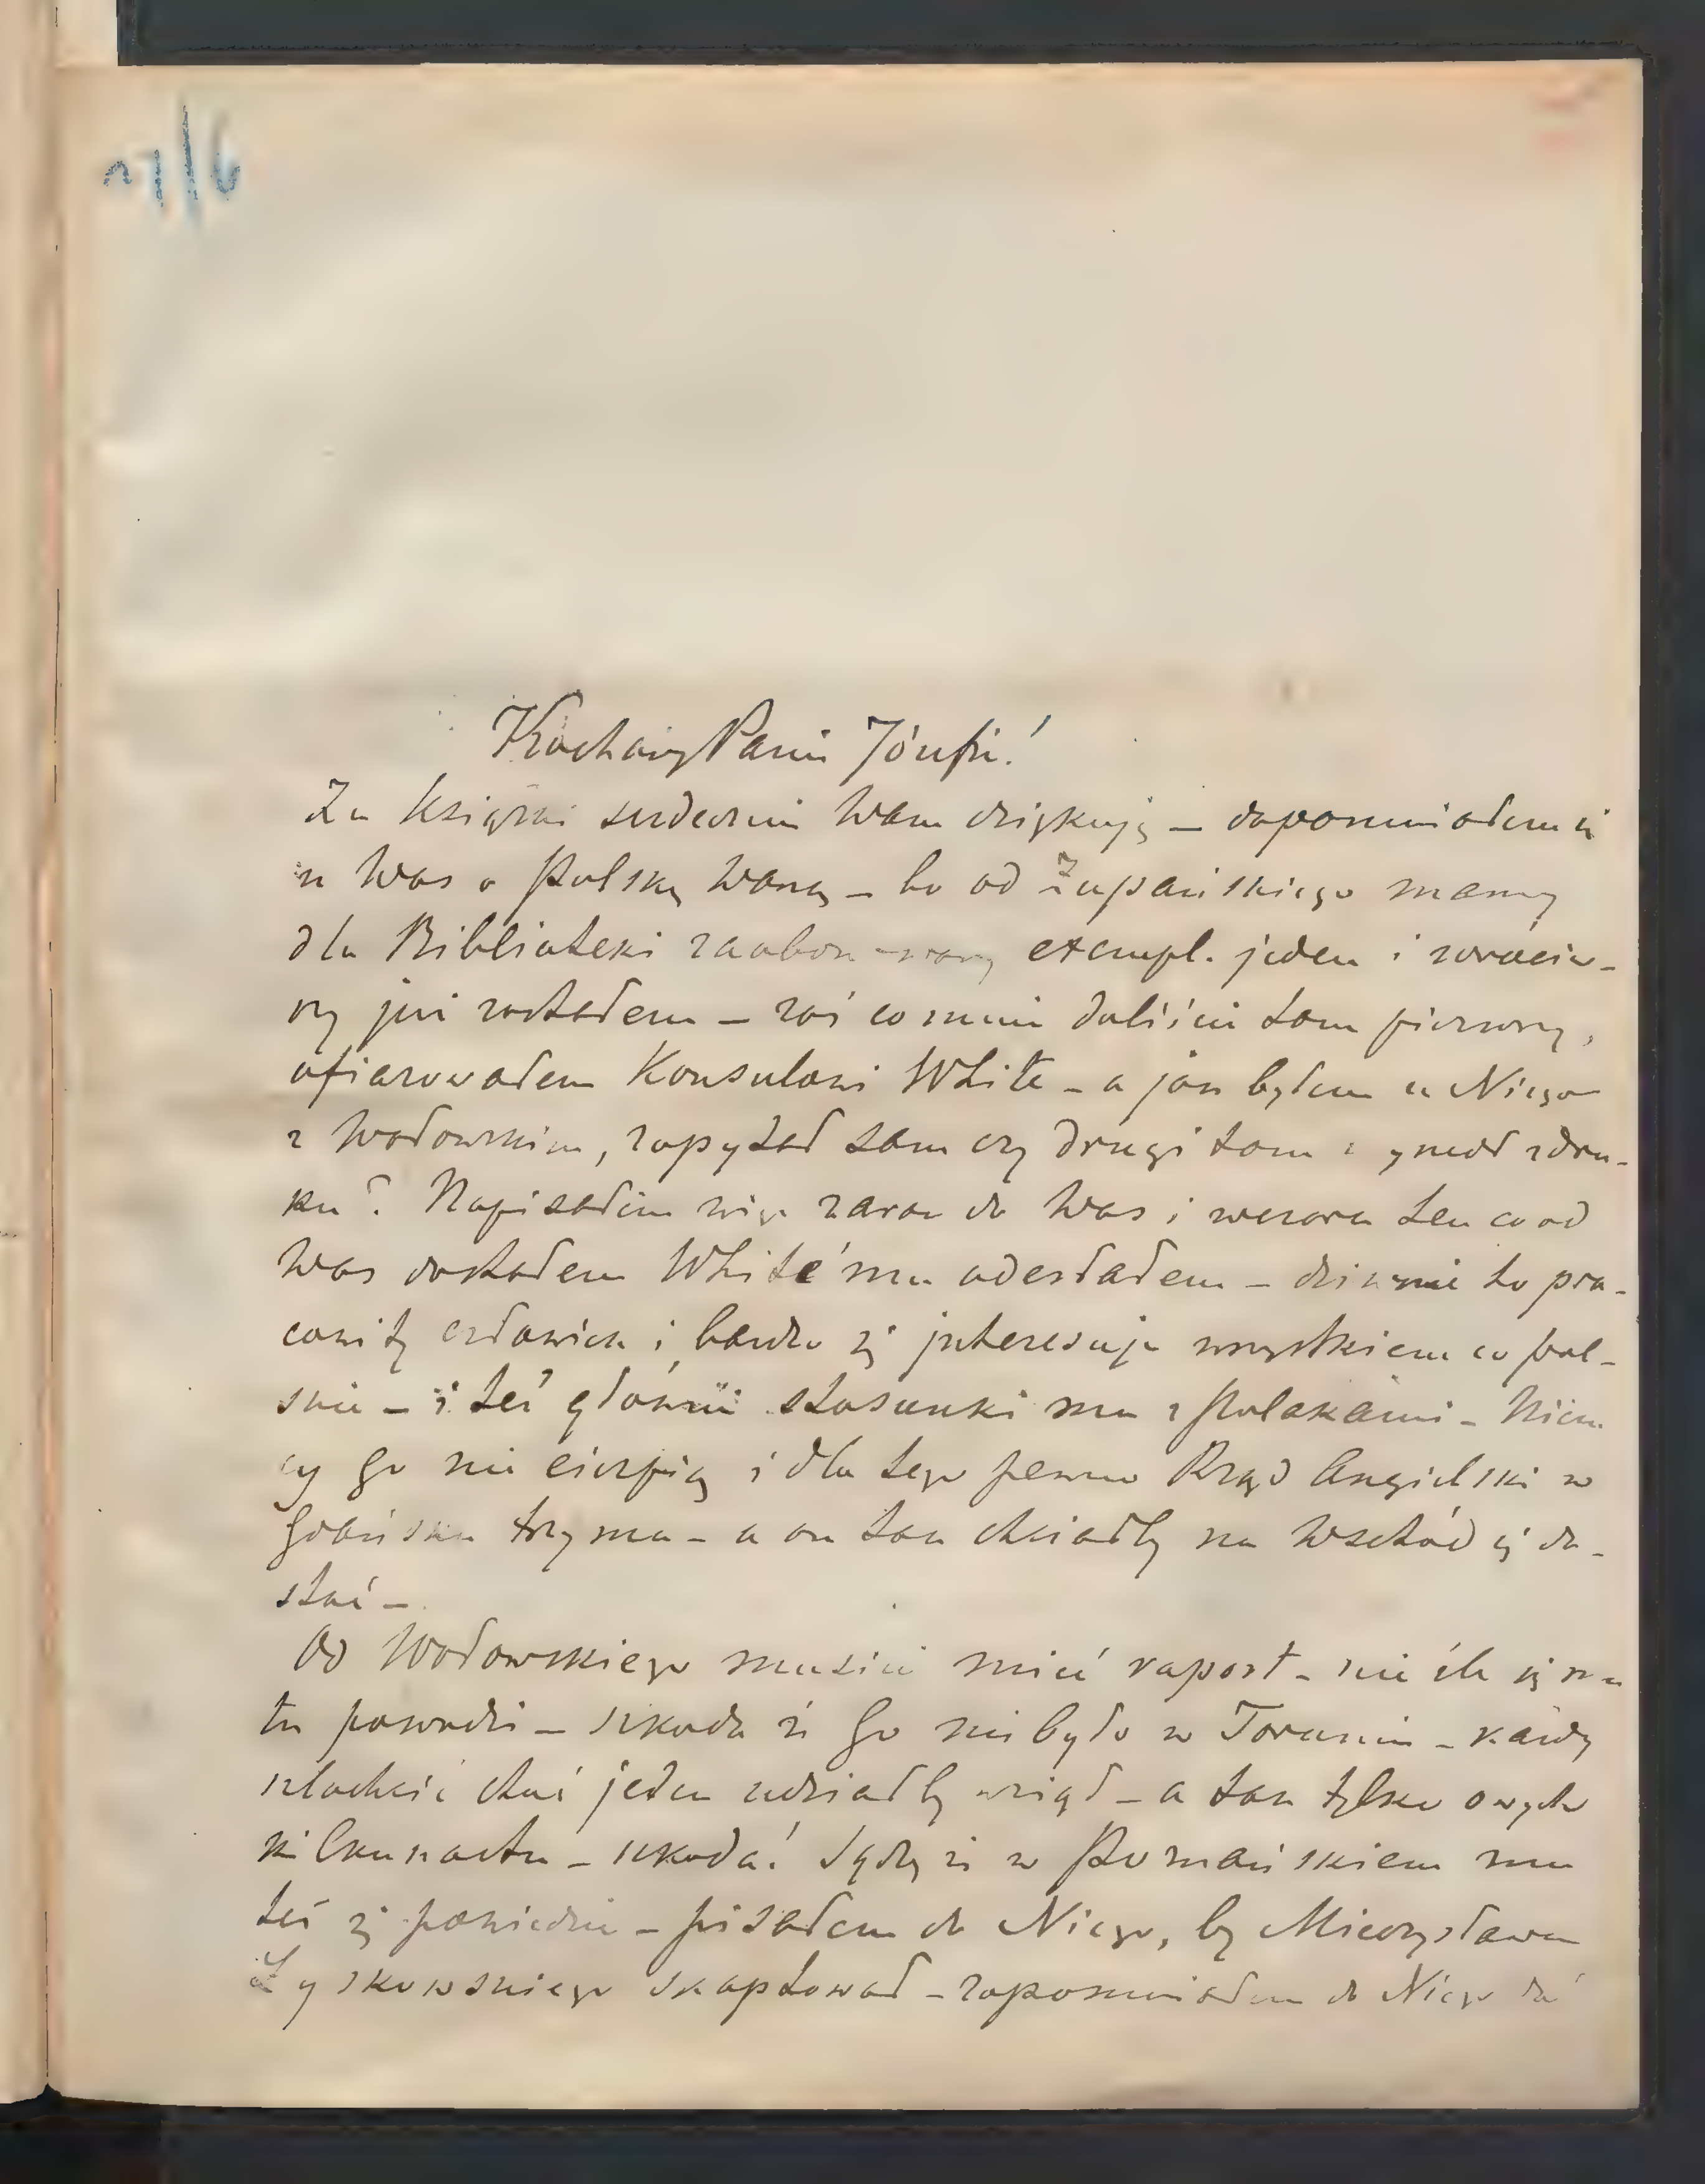 Kochany Panie Józefie!
Za książki serdecznie Wam dziękuję — dopomniałem się
u Was o Polskę Waszą — bo od Żupańskiego mamy
dla Biblioteki zaabonowany exempl. jeden i zwróciw-
szy już zostałem — zaś co mnie daliście tom pierwszy,
ofiarowałem Konsulowi White — a jak byłem u Niego
z Wołowskim, zapytał sam czy drugi tom wyszedł z dru-
ku? Napisałem więc zaraz do Was i wczora ten co od
Was dostałem White'mu odesłałem — dziwnie to pra-
cowity człowiek i bardzo się interesuje wszystkiem co pol-
skie — i też główne stosunki ma z Polakami — Niem
cy go nie cierpią i dla tego pewno Rząd Angielski w
Gdańsku trzyma — a on tak chciałby na Wschód się do-
stać —
Od Wołowskiego musicie mieć raport — nie źle się mu
tu powodzi — szkoda że Go nie było w Toruniu — każdy
szlachcic choć jeden udział by wziął — a tak tylko owych
kilkunastu — szkoda! Sądzę że w Poznańskiem mu
też się powiedzie — pisałem do Niego, by Mieczysława
Łyskowskiego skaptował — zapomniałem do Niego dać